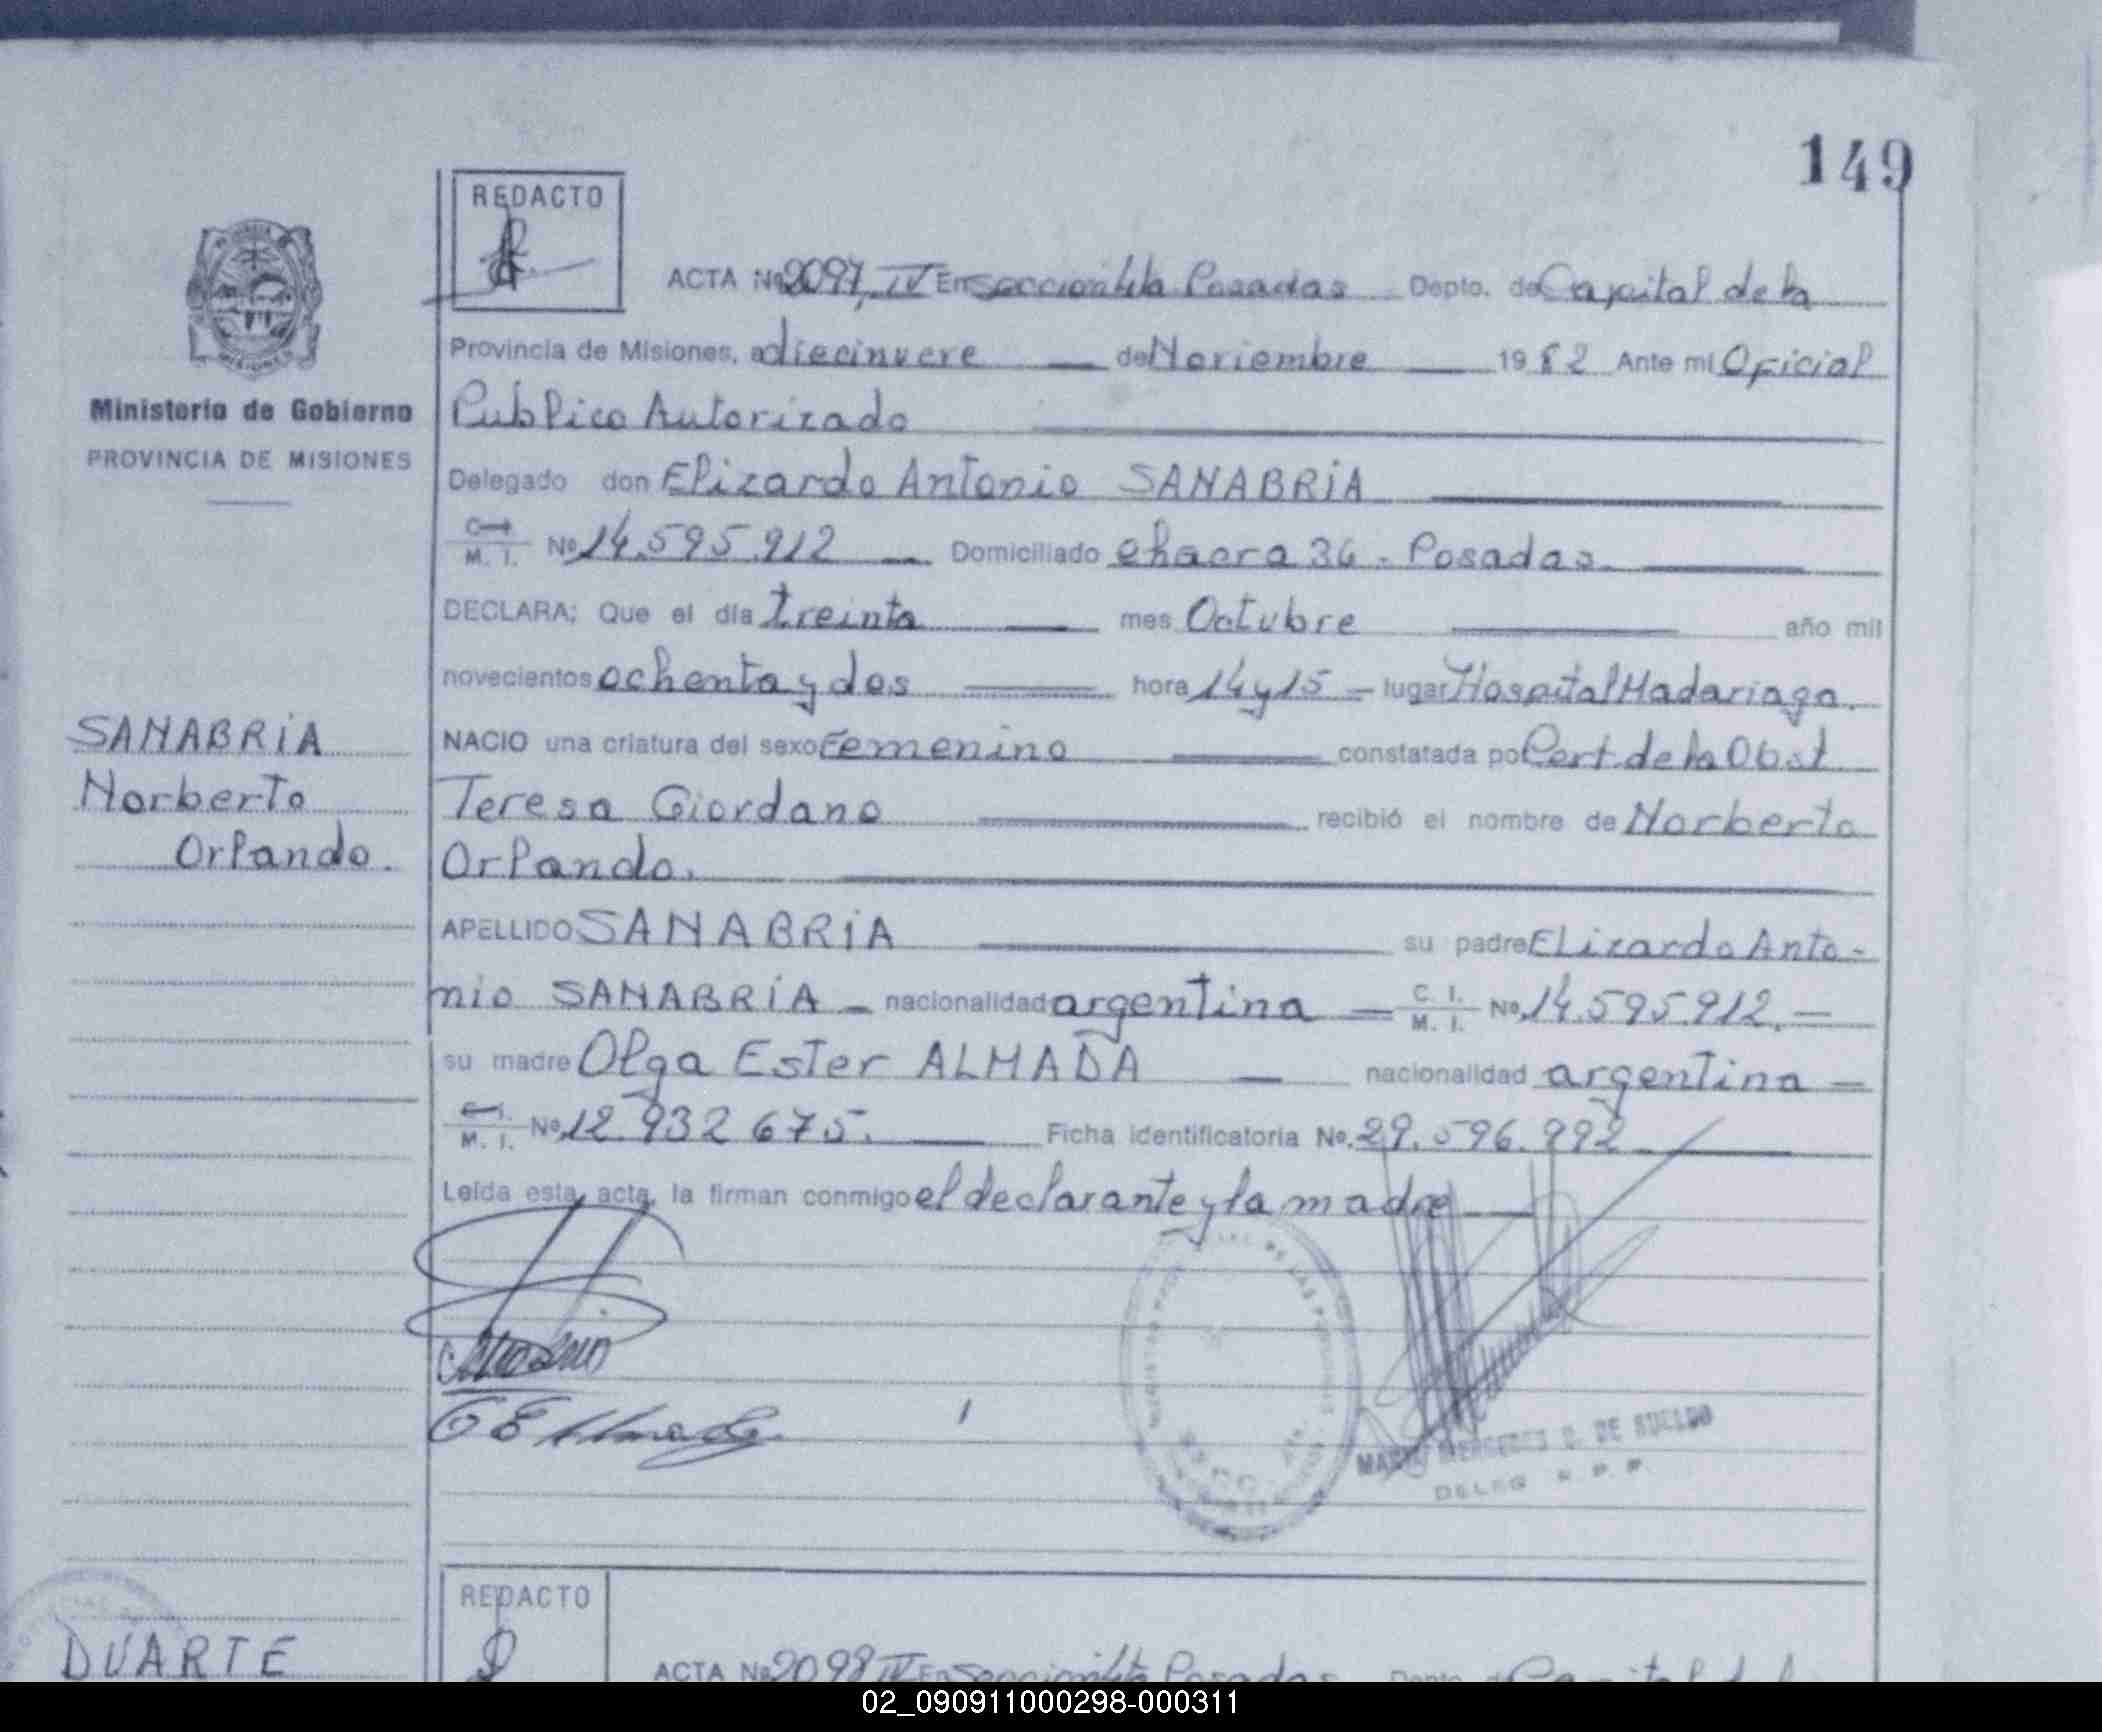 149
REDACTO
ACTA No 2097, IV En seccion 4ta Posadas Depto. de Capital de la
Provincia de Misiones, a diecinueve de Noviembre 1982 Ante mi Oficial
Publico Autorizado
Ministerio de Gobierno
PROVINCIA DE MISIONES
Delegado don Elizardo Antonio SANABRIA
C. I. M. I. No 14.595.912 Domiciliado chacra 36 - Posadas.
DECLARA; Que el día treinta mes Octubre año mil
novecientos ochenta y dos hora 14 y 15 - lugar Hospital Madariaga.
SANABRIA
Norberto
Orlando.
NACIO una criatura del sexo Femenino constatada po Cert. de la Obst
Teresa Giordano recibió el nombre de Norberto
Orlando.
APELLIDO SANABRIA su padre Elizardo Anto-
nio SANABRIA - nacionalidad argentina - C. I. M. I. No. 14.595.912. -
su madre Olga Ester ALMADA - nacionalidad argentina -
C. I. M. I. No. 12.932 675. Ficha identificatoria No. 29.596.992
Leída esta acta, la firman conmigo el declarante y la madre
DE LAS P
DE SUELDO
DELEG R. P. P.
REDACTO
DUARTE
ACTA No 2098 IV En seccion 4ta Posadas Depto. d Capital de l
02_090911000298-000311